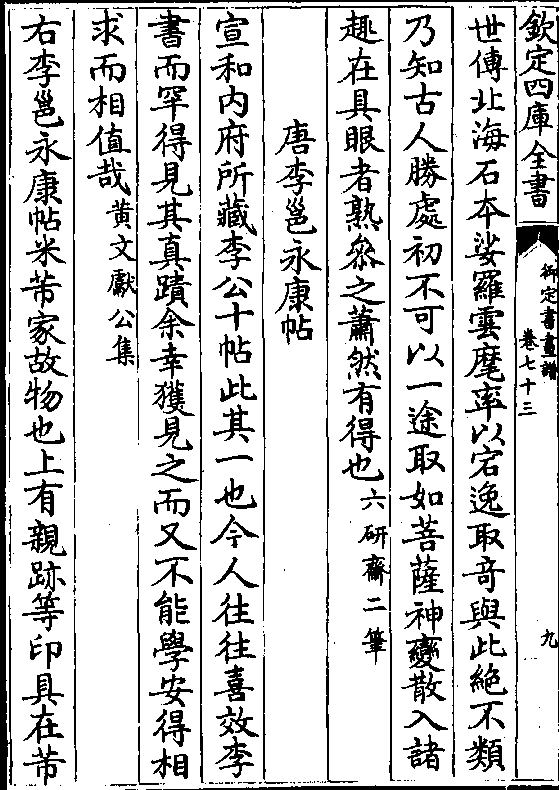 欽定四庫全書
御定書畫譜
卷七十三
九
世傳北海石本娑羅雲麾率以宕逸取竒與此絶不類
乃知古人勝處初不可以一途取如菩薩神變散入諸
趣在具眼者熟叅之蕭然有得也六研齋二筆
唐李邕永康帖
宣和内府所藏李公十帖此其一也今人往往喜效李
書而罕得見其真蹟余幸獲見之而又不能學安得相
求而相值哉黄文獻公集
右李邕永康帖米芾家故物也上有親跡等印具在芾